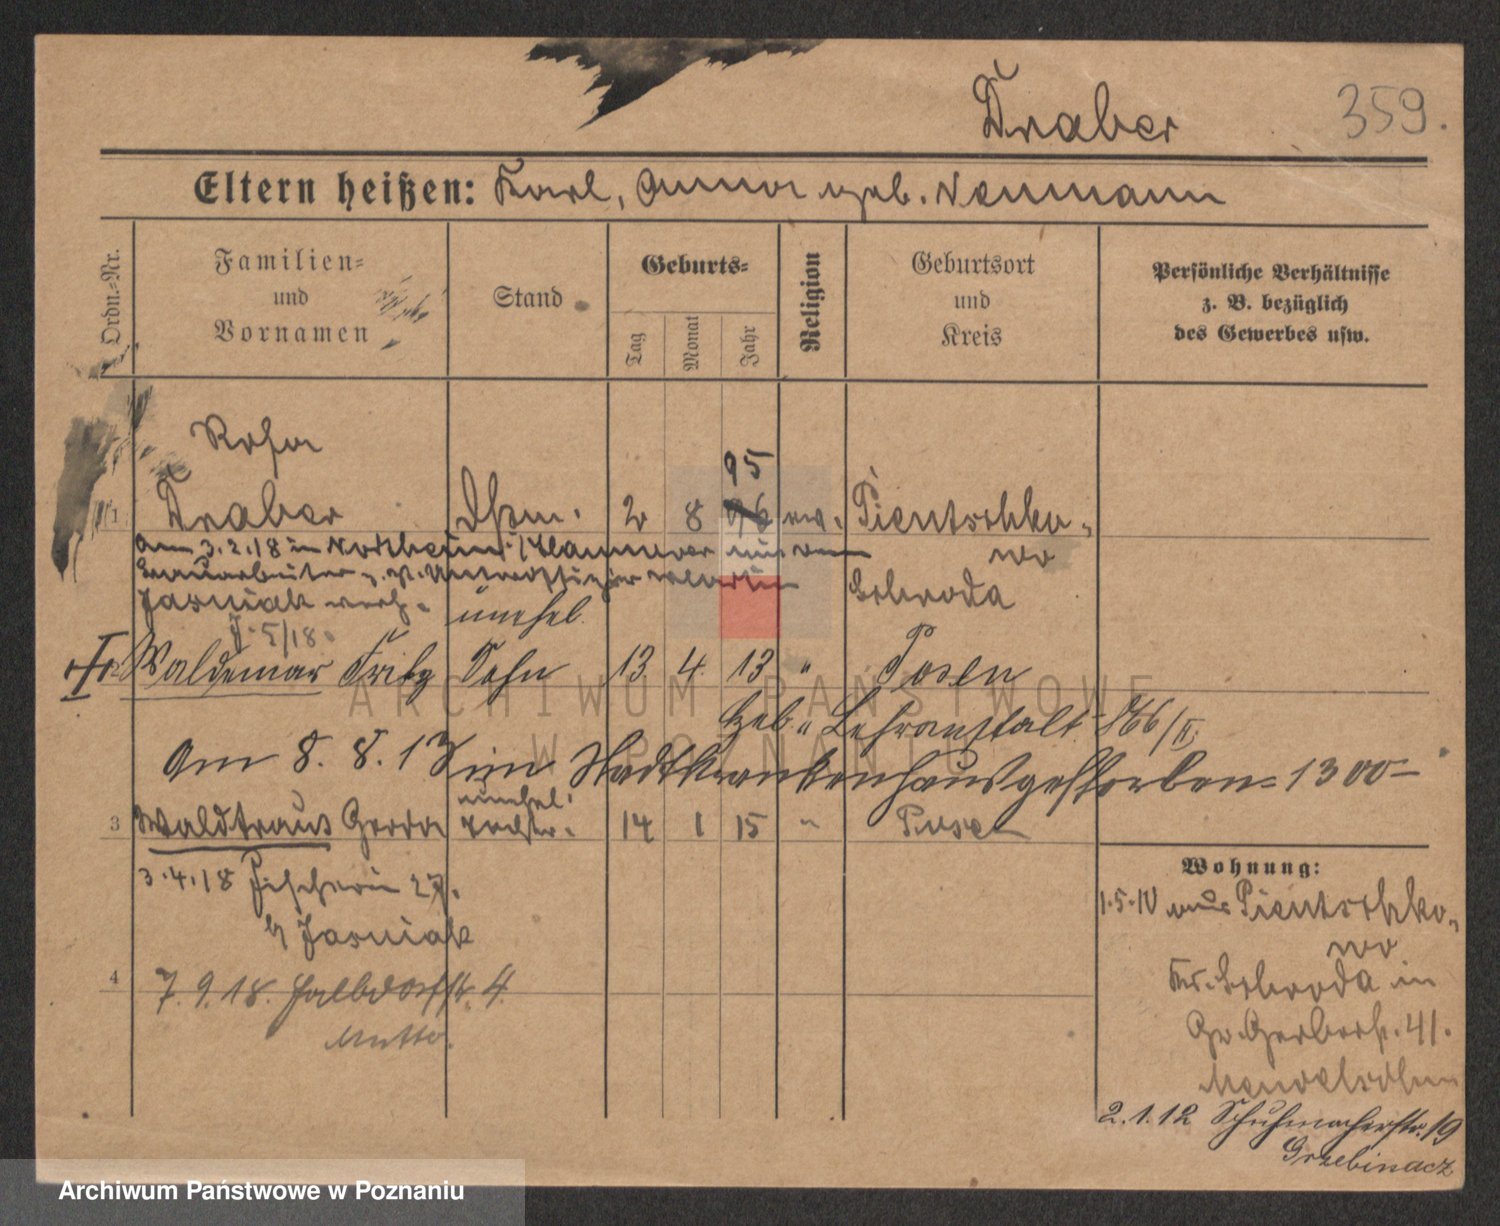 Draber
359.
Eltern heißen: Karl, Anna geb. Neumann
Ordn.-Nr.
Familien-
und
Vornamen
Stand
Geburts-
Tag
Monat
Jahr
Religion
Geburtsort
und
Kreis
Persönliche Verhältnisse
z. B. bezüglich
des Gewerbes usw.
Rosa
95
1 Draber 2 8 96 ev. Pientschko-
wo
Am 3.2.18 in Northeim / Hannover mit dem
Jasniak verh.
Schroda
unehel.
J. 5/18
Waldemar Fritz Sohn 13 4 13 " Posen
Geb. " Lehranstalt 766/II
Am 8. 8. 13 im Stadtkrankenhaus gestorben 1300
unehel.
3 Waldtraus Gerda Tochter 14 1 15 " Posen
3.4.18 Fischerin 27.
b/ Jasniak
4
7.9.18. Halbdorfstr. 4.
Mutter
Wohnung:
1.5.10 aus Pientschko-
wo
Kr. Schroda in
Gr. Gerberstr. 41.
Mendelsohn
2.1.12 Schuhmacherstr. 19
Grzebinacz
ARCHIWUM PAŃSTWOWE
W POZNANIU
Archiwum Państwowe w Poznaniu